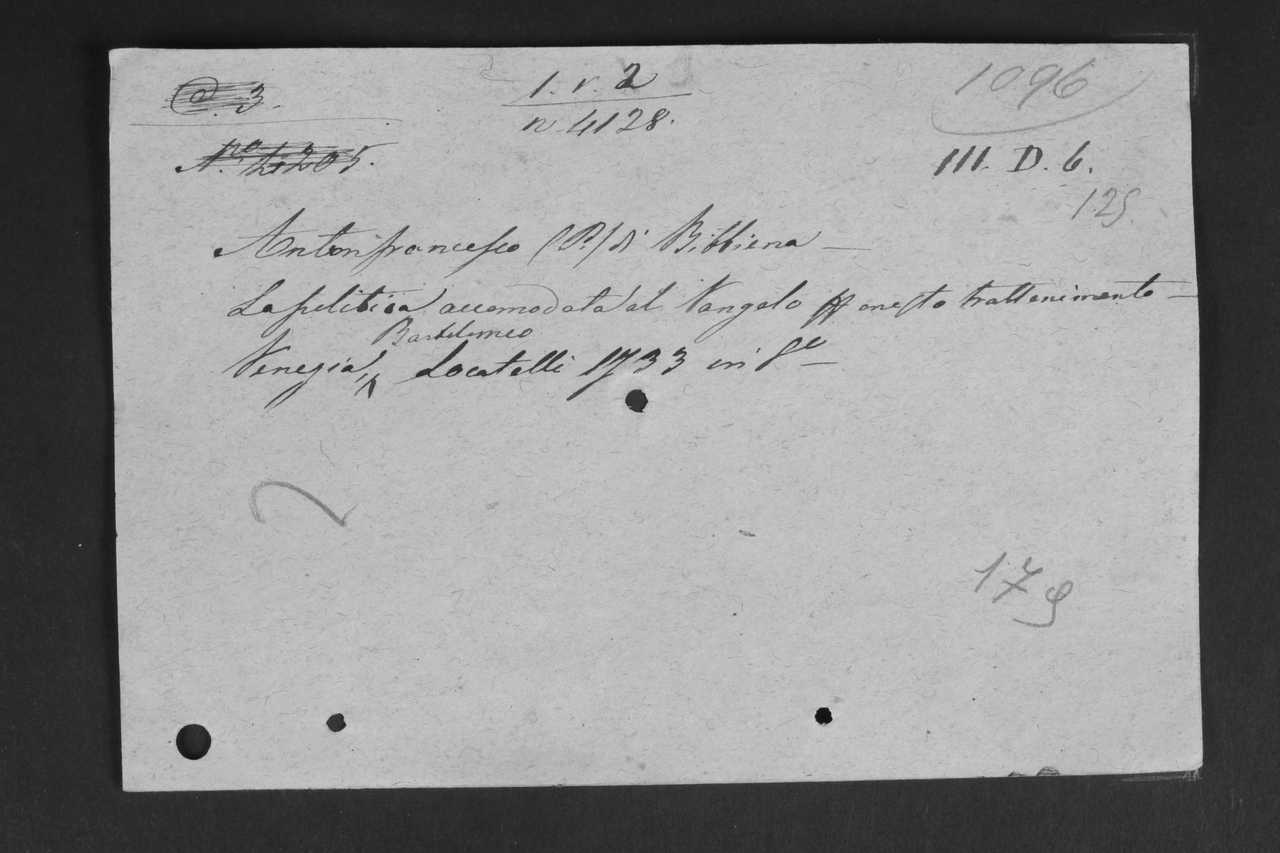 C. 3.
1. v. 2
n. 4128.
1096
N.ro 4205.
III. D. 6.
125.
Antonfrancesco (P.) di Bibbiena —
La politica accomodata al Vangelo onesto trattenimento —
Bartolomeo
Venezia, Locatelli 1733 in 8e —
179